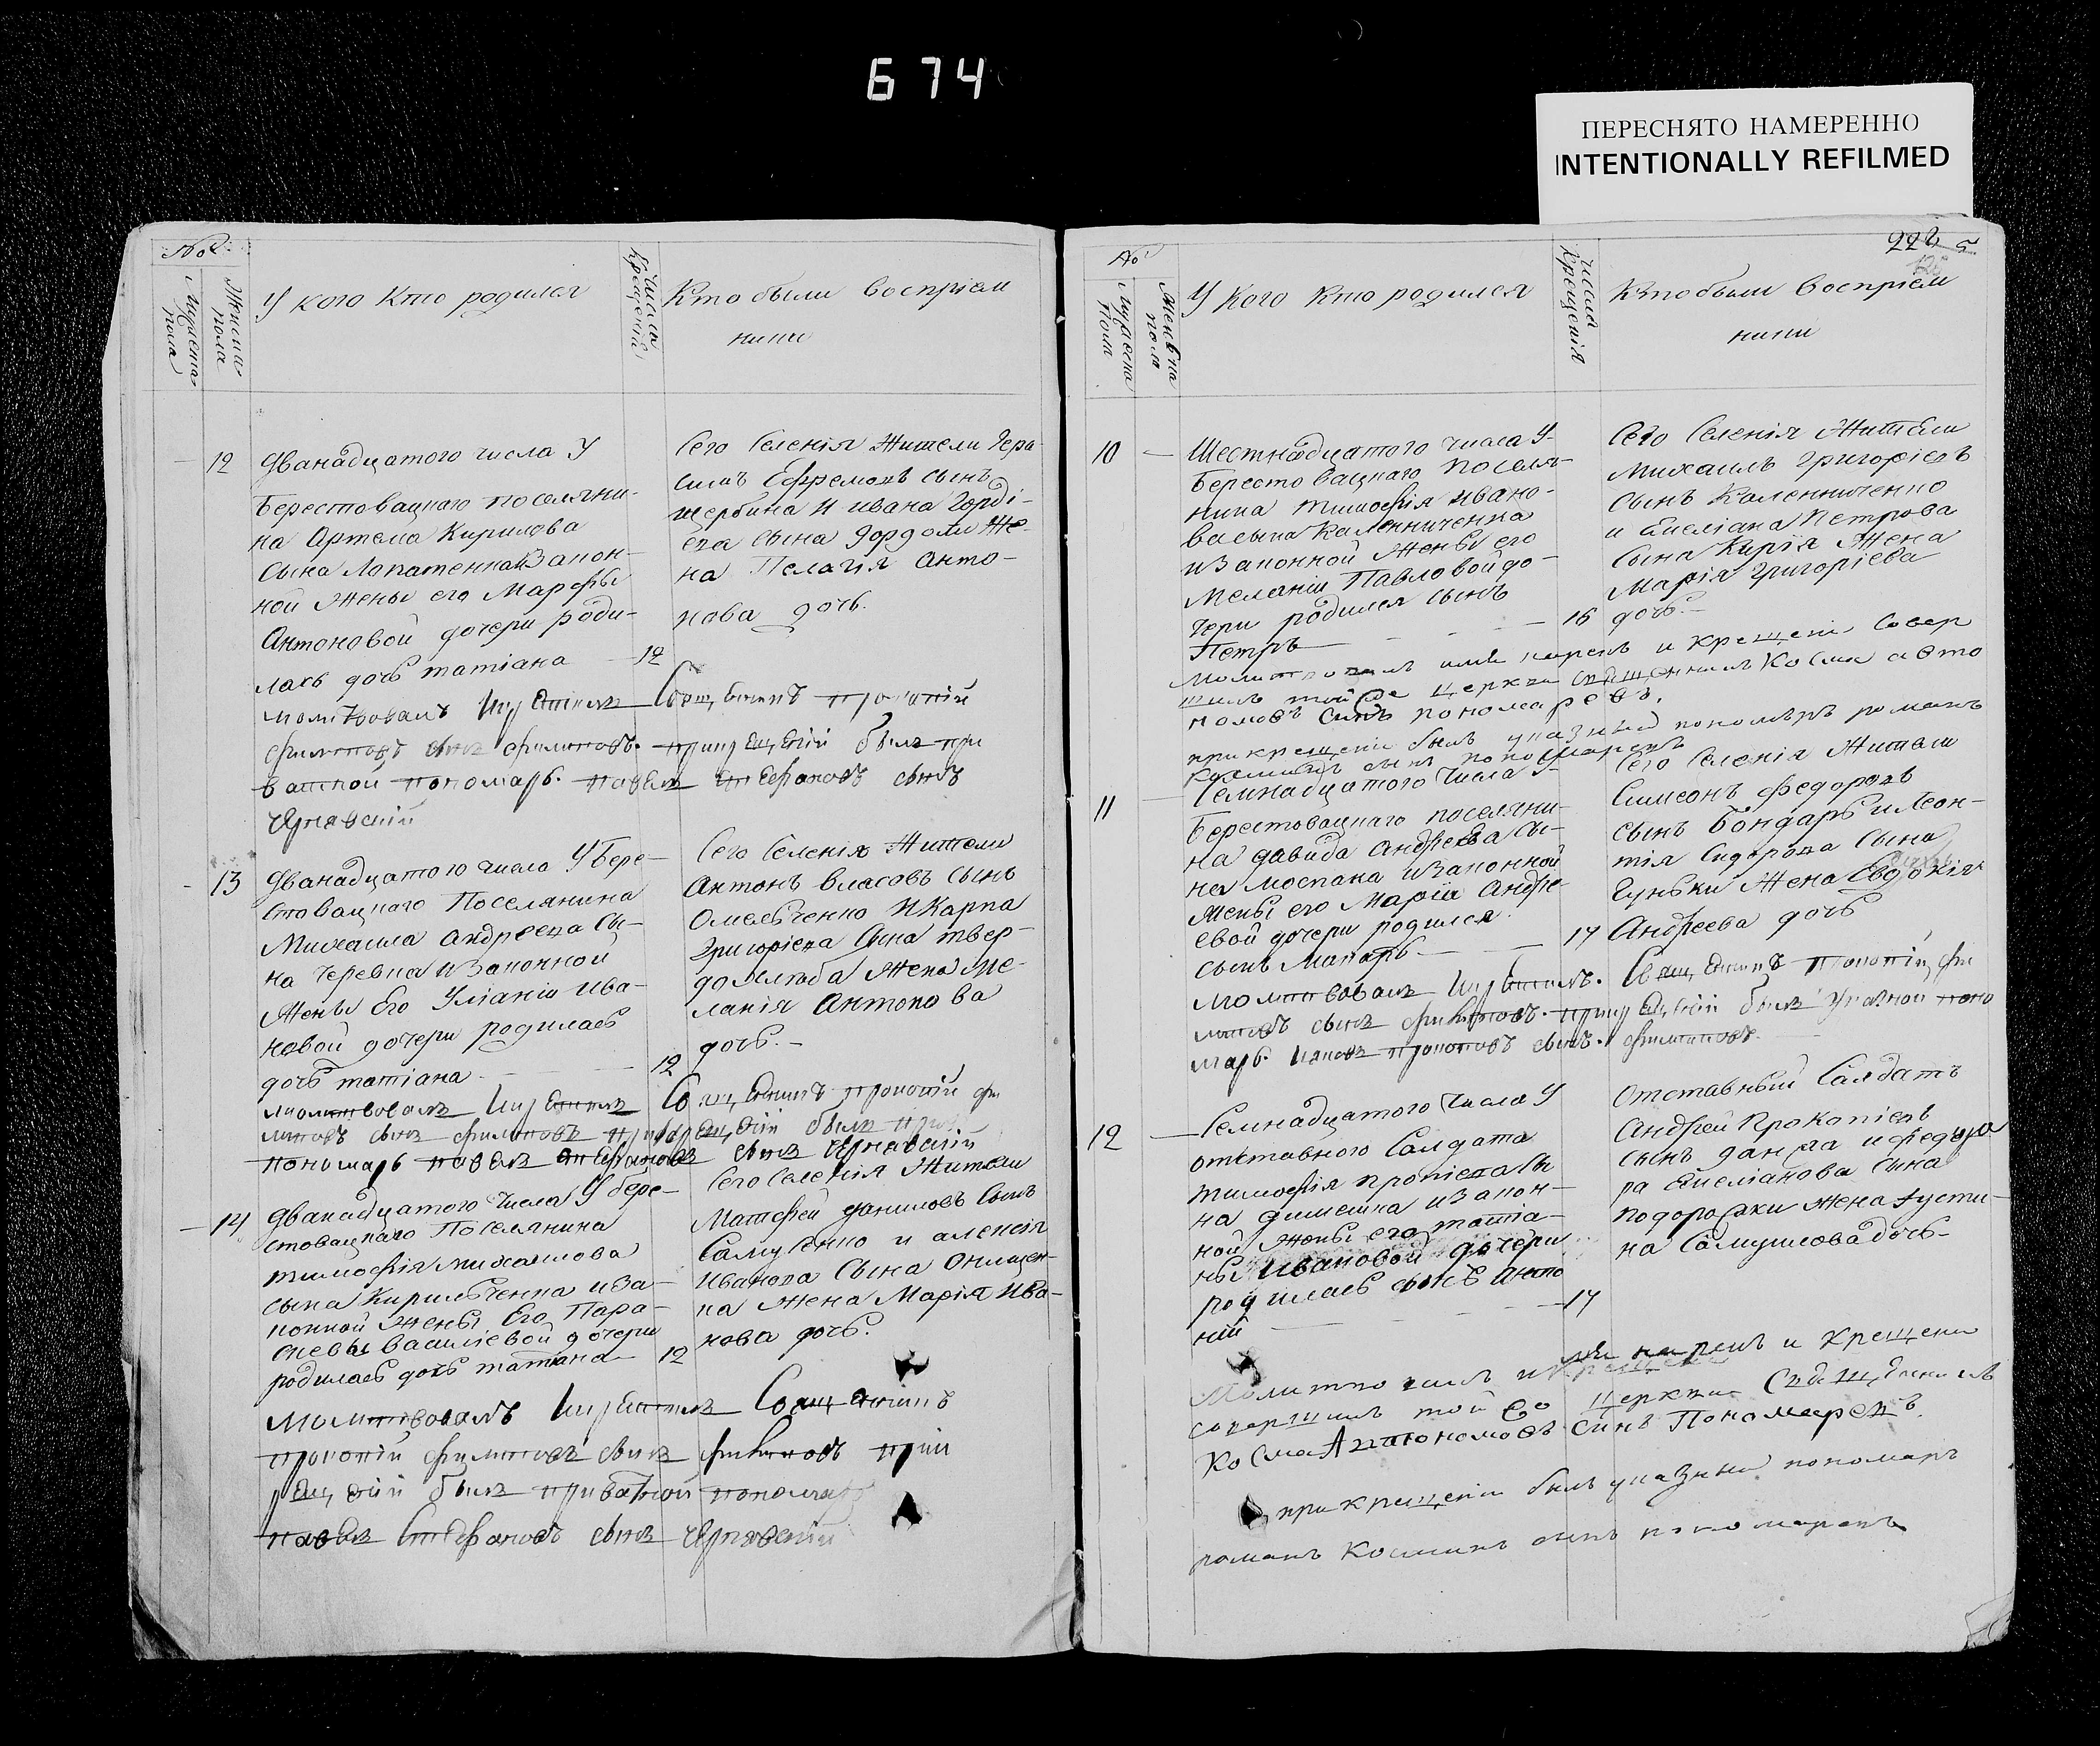 674
ПЕРЕСНЯТО НАМЕРЕННО
INTENTIONALLY REFILMED
№
Мужеска пола
Женска пола
У кого кто родился
Числа крещеній
Кто были воспріем
ники
12
Дванадцатого числа У
Берестовацкаго поселяни-
на Артема Кирилова
сына Лопатенка изакон-
ной жены его Марфы
Антоновой дочери роди-
лась дочь татіана
12
Сего Селенія Жители Гера-
симъ Ефремовъ сынъ
щербина и ивана Горді-
ева сына Же-
на Пелагія Анто-
нова дочь.
молитвовалъ икрестилъ Священникъ прокопій
филиповъ сынъ филиповъ. прикрещеніи былъ при
ватной пономарь. павелъ стефановъ сынъ
Чернявскій
13
Дванадцатого числа У Бере-
стовацкаго Поселянина
Михаила Андреева сы-
на Черевка изаконной
жены Его Уліаніи ива-
новой дочери родилась
дочь татіана
12
Сего Селенія Жители
Антонъ власовъ сынъ
Омельченко и Карпа
Григоріева сына твер-
дохлѣба жена Ме-
ланія Антонова
дочь.-
молитвовалъ икрестилъ Священникъ прокопій фи
липовъ сынъ филиповъ прикрещеніи былъ при
пономарь павелъ стефановъ сынъ Чернявскій
14
Дванадцатого числа У бере-
стовацкаго Поселянина
тимофія михаилова
сына Кирильченка иза-
конной жены Его Пара-
скевы василіевой дочери
родилась дочь татіана
12
Сего Селенія Жители
Матфей даниловъ сынъ
Самусенко и алексія
иванова сына Онищен-
ка жена Марія ива-
нова дочь.
молитвовалъ икрестилъ Священникъ
прокопій филиповъ сынъ филиповъ при
крещеніи былъ приватной пономарь
павелъ Стефановъ сынъ чернявскій
222
5
№
Мужеска пола
Женска пола
У кого кто родился
Числа крещенія
Кто были воспріем
ники
10
Шестнадцатого числа У
Берестовацкаго поселя-
нина тимофія ивано-
ва сына Каленниченка
изаконной жены его
Меланіи Павловой до-
чери родился сынъ
Петръ
16
Сего Селенія Жители
Михаилъ Григоріевъ
сынъ Каленниченко
и Емеліана Петрова
сына Кирія жена
Марія Григоріева
дочь.-
молитвовалъ имя нарекъ и крещеніе совер
шилъ той же церкви священникъ Косма авто
номовъ сынъ пономаревъ.
при крещеніи былъ указный пономаръ романъ
Косминъ сынъ пономаревъ
11
Семнадцатого числа У
Берестовацкаго поселяни-
на давида андреева сы-
на моспана изаконной
жены его Маріи андре-
евой дочери родился
сынъ Макарь
17
Сего Селенія Жители
Симеонъ федоровъ
сынъ бондарь и Леон-
тія Сидорова сына
Гуньки жена Евдокія
Андреева дочь
молитвовалъ икрестилъ. Священникъ прокопій фи
липовъ сынъ филиповъ. прикрещеніи былъ указной поно
марь. іяковъ прокоповъ сынъ. филиповъ.
12
Семнадцатого числа У
отставного Салдата
тимофія
на изакон-
ной жены его татіа-
ны ивановой дочери
родилась сынъ Анто
ній
17
Отставный Салдатъ
Андрей Прокопіевъ
сынъ и федора
Емеліанова сына
подорожки жена Аусти-
на Самуилова дочь-
Молитвовалъ имя нарекъ и крещеніе
совершилъ той же церкви Священникъ
Косма Автономовъ Синъ Пономаревъ.
при крещеніи былъ указный пономаръ
романъ Косминъ синъ пономаревъ